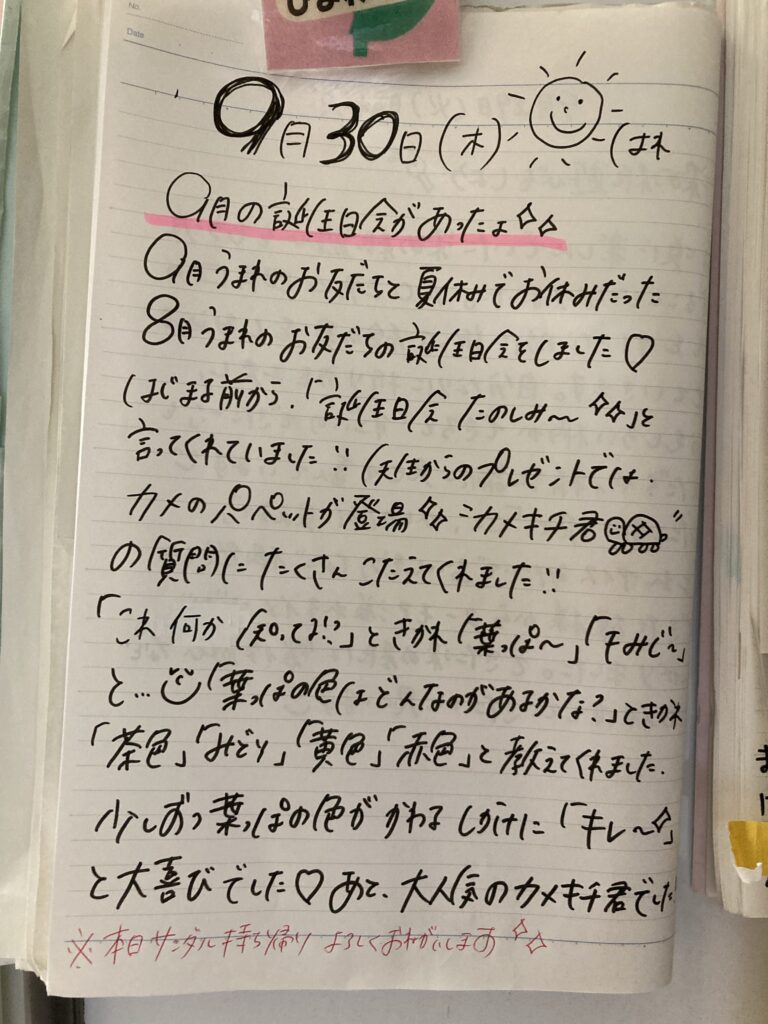 No.
Date
9月30日(木) (はれ
9月の誕生日会があったよ
9月うまれのお友だちと夏休みでお休みだった
8月うまれのお友だちの誕生日会をしました♡
はじまる前から、「誕生日会 たのしみ〜」と
言ってくれていました!! 先生からのプレゼントでは、
カメのパペットが登場 "カメキチ君"
の質問にたくさんこたえてくれました!!
「これ何か知ってる!?」ときかれ「葉っぱ〜」「もみじ〜」
と…「葉っぱの色はどんなのがあるかな?」ときかれ
「茶色」「みどり」「黄色」「赤色」と教えてくれました。
少しずつ葉っぱの色がかわるしかけに「キレ〜」
と大喜びでした♡ あと、大人気のカメキチ君でした!
※本日サンダル持ち帰り よろしくおねがいします